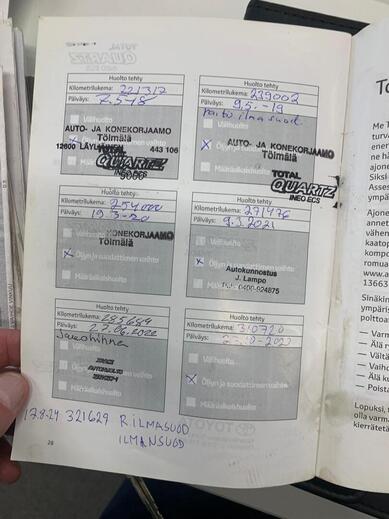 Huolto tehty
Kilometrilukema: 221317
Päiväys: 7.5-18
Välihuolto
AUTO- JA KONEKORJAAMO
Töimälä
12600 LÄYLIÄINEN 443 106
TOTAL
QUARTZ
INEO ECS
Määräaikaishuolto
Huolto tehty
Kilometrilukema: 239002
Päiväys: 9.5.-19
Poltto ilmasuod.
Välihuolto
X
AUTO- JA KONEKORJAAMO
Töimälä
TOTAL
QUARTZ
INEO ECS
Huolto tehty
Kilometrilukema: 254000
Päiväys: 19.3-20
KONEKORJAAMO
Töimälä
X Öljyn ja suodattimen vaihto
Määräaikaishuolto
Huolto tehty
Kilometrilukema: 271476
Päiväys: 9.3.2021
Välihuolto
X Öljyn ja suodattimen vaihto
Autokunnostus
J. Lampo
Puh. 0400-924875
Huolto tehty
Kilometrilukema:
Päiväys: 27.06.2022
Välihuolto
Öljyn ja suodattimen vaihto
Määräaikaishuolto
Huolto tehty
Kilometrilukema: 310720
Päiväys:
Välihuolto
X Öljyn ja suodattimen vaihto
Määräaikaishuolto
17.9-24 321629 RILMASUOD
ILMANSUOD
28
Me T
turva
Siksi
Asses
ympä
Ajone
annet
vähen
kaatop
kompo
romua
www.a
13663
Sinäkin
ympäris
polttoai
— Varm
— Älä r
— Vältä
— Älä k
— Poista
Lopuksi, t
olla varma
kierrätetä